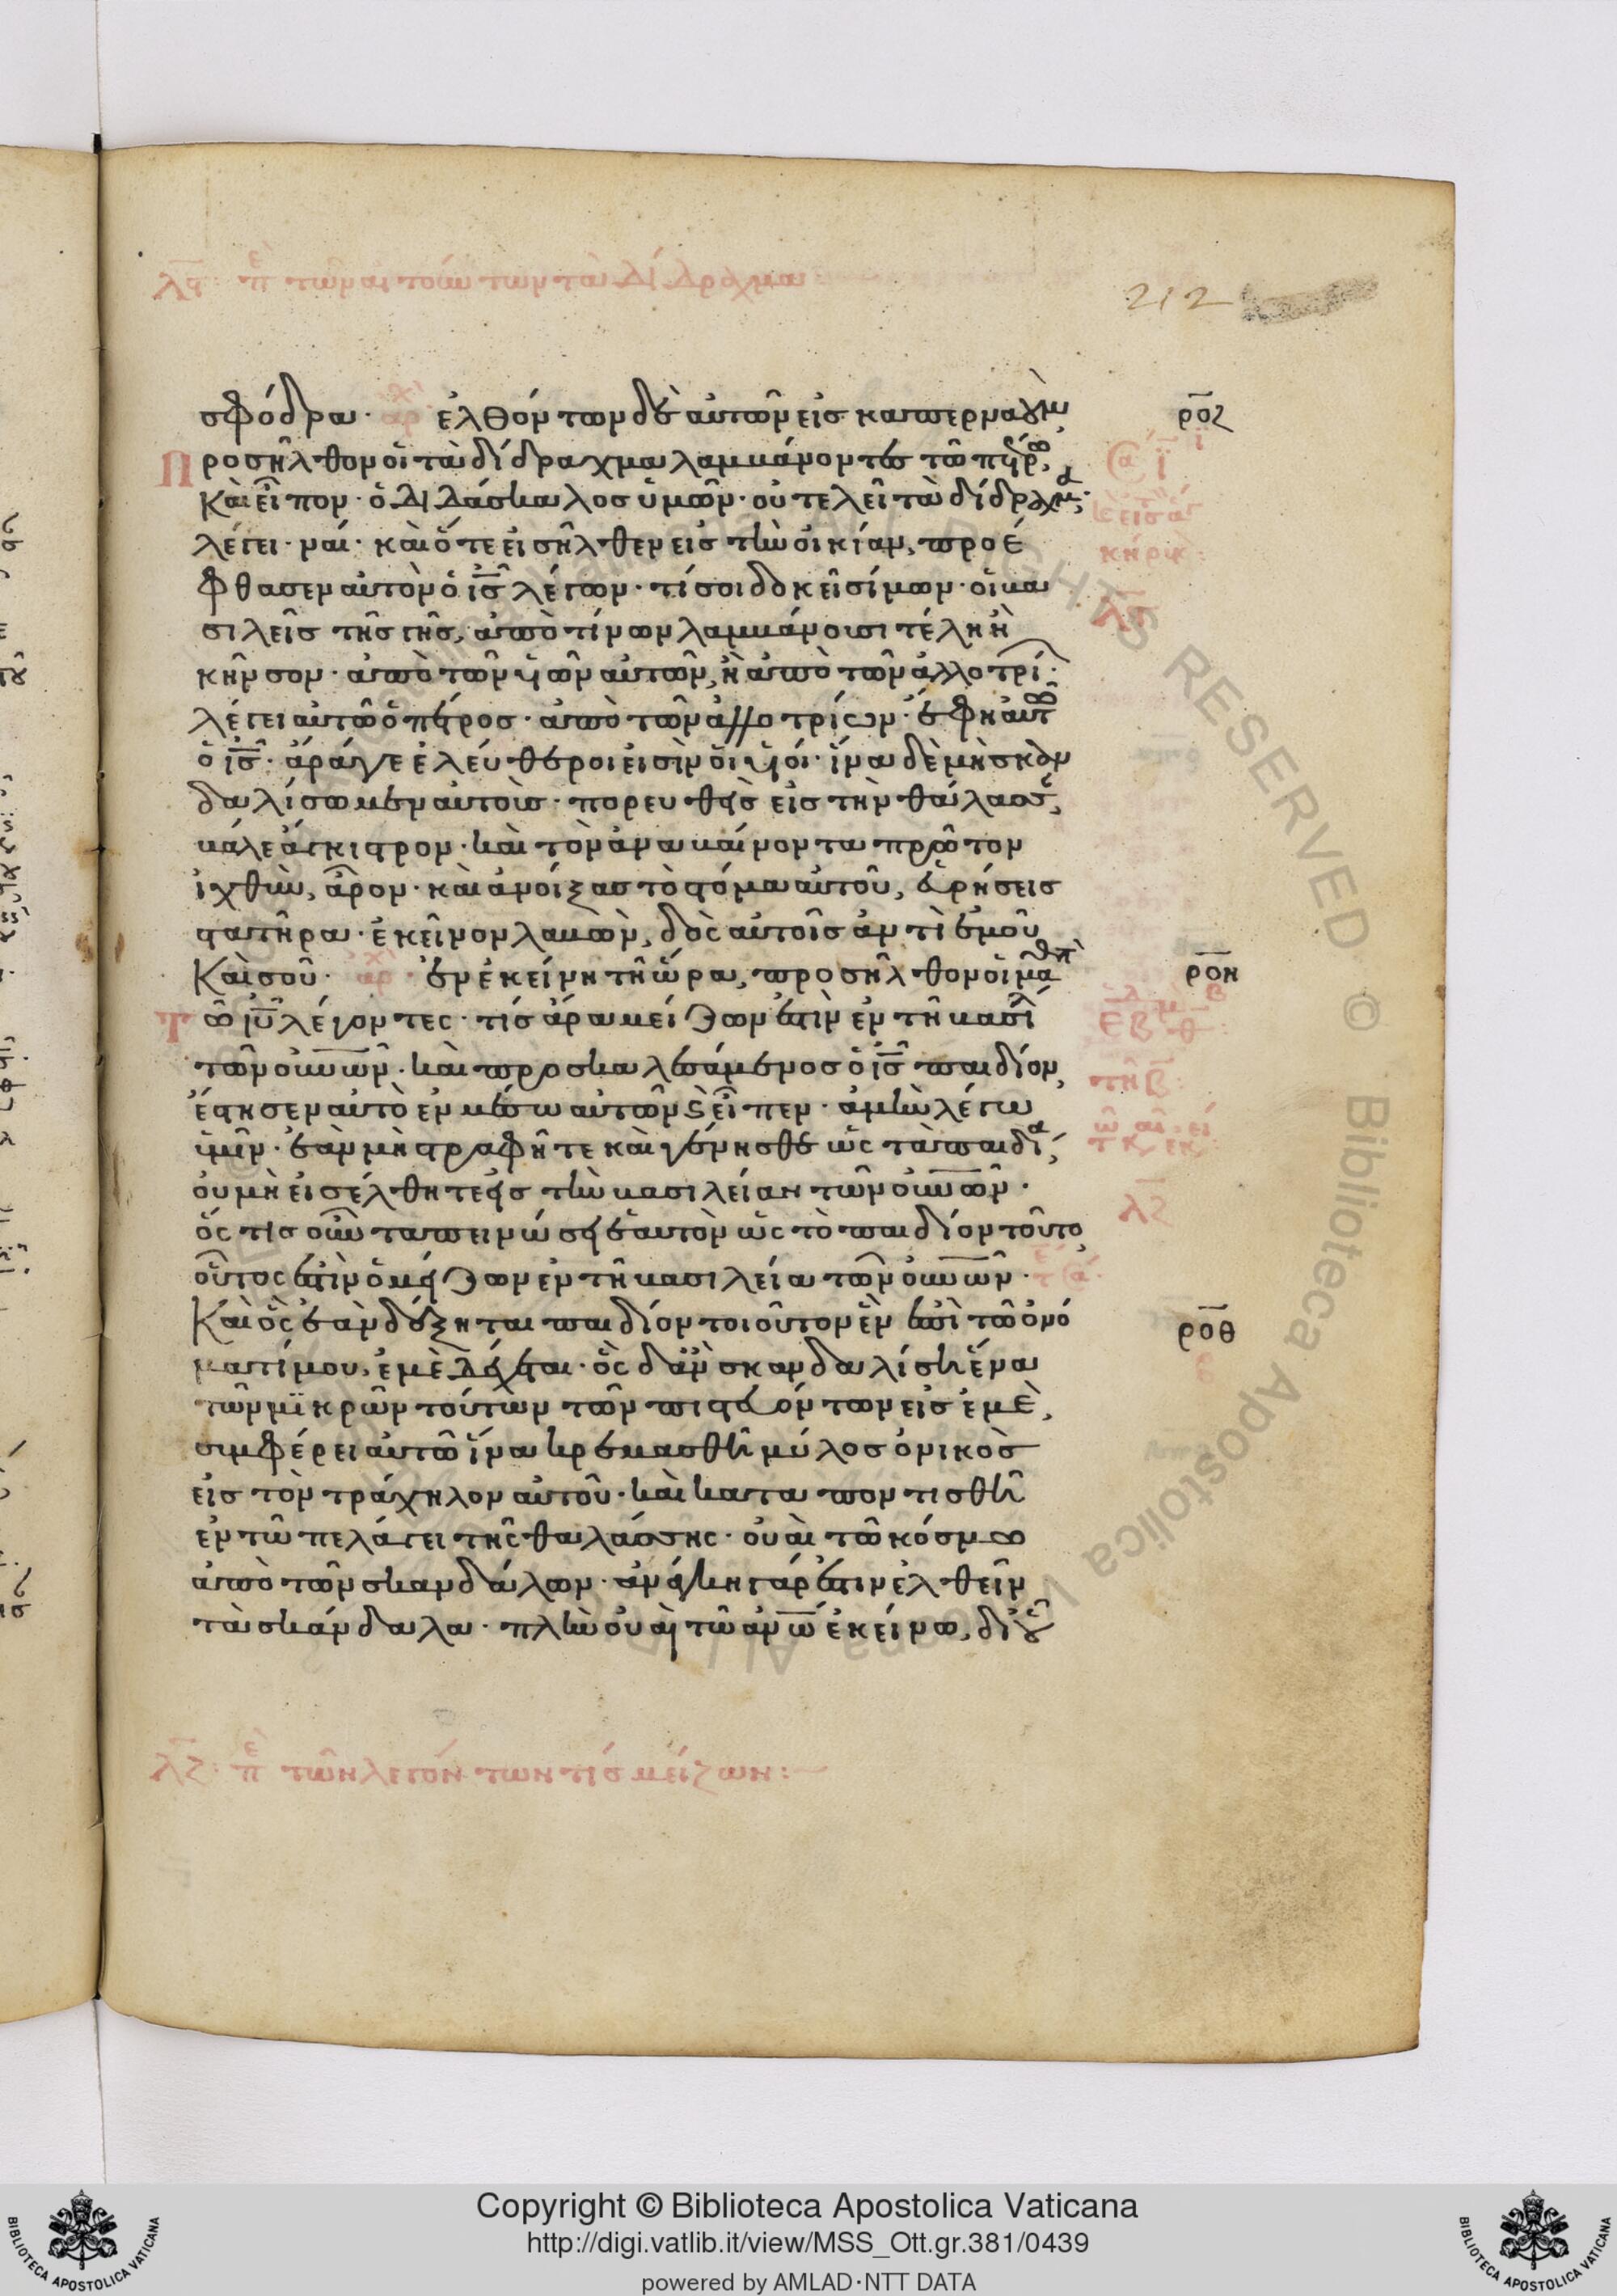 λϛ: πε τῶν αἰτούντων τὰ δίδραχμα:
212
σφόδρα· ἀρχ ἐλθόντων δὲ αὐτῶν εἰς καπερναοὺμ, ροζ
Προσῆλθον οἱ τὰ δίδραχμα λαμβάνοντες τῶ πέτρω,
Καὶ εἶπον· ὁ διδάσκαλος ὑμῶν· οὐ τελεῖ τὰ δίδραχμα;
λέγει· ναί· καὶ ὅτε εἰσῆλθεν εἰς τὴν οἰκίαν, προέ
φθασεν αὐτὸν ὁ ις λέγων· τί σοι δοκεῖ σίμων· οἱ βα
σιλεῖς τῆς γῆς, ἀπὸ τίνων λαμβάνουσι τέλη ἢ
κῆνσον· ἀπὸ τῶν υἱῶν αὐτῶν, ἢ ἀπὸ τῶν ἀλλοτρί·
λέγει αὐτῶ ὁ πέτρος· ἀπὸ τῶν ἀλλοτρίων· ἔφη αὐτῶ
ὁ ις· ἄραγε ἐλεύθεροι εἰσὶν οἱ υἱοί· ἵνα δὲ μὴ σκαν
δαλίσωμεν αὐτοὺς· πορευθεὶς εἰς τὴν θάλασσ,
βάλε ἄγκιστρον· καὶ τὸν ἀναβαίνοντα πρῶτον
ἰχθὺν, ἆρον· καὶ ἀνοίξας τὸ στόμα αὐτοῦ, εὑρήσεις
στατῆρα· ἐκεῖνον λαβὼν, δὸς αὐτοῖς ἀντὶ ἐμοῦ
Καὶ σοῦ· ἀρχ ἐν ἐκείνη τῆ ὥρα, προσῆλθον οἱ μαθητ ροη
Τῶ ιυ λέγοντες· τίς ἄρα μείζων ἐστὶν ἐν τῆ βασιλεί
τῶν ουνων· καὶ προσκαλεσάμενος ὁ ις παιδίον,
ἔστησεν αὐτὸ ἐν μέσω αὐτῶν ϗ εἶπεν· ἀμὴν λέγω
ὑμῖν· ἐὰν μὴ στραφῆτε καὶ γένησθε ὡς τὰ παιδία,
οὐ μὴ εἰσέλθητε εἰς τὴν βασιλείαν τῶν ουνων·
ὅς τις οὖν ταπεινώσει ἑαυτὸν ὡς τὸ παιδίον τοῦτο,
οὗτος ἐστὶν ὁ μείζων ἐν τῆ βασιλεία τῶν ουνων·
Καὶ ὃς ἐὰν δέξηται παιδίον τοιοῦτον ἓν ἐπὶ τῶ ὀνό ροθ
ματί μου, ἐμὲ δέχεται· ὃς δ' ἂν σκανδαλίση ἕνα
τῶν μικρῶν τούτων τῶν πιστευόντων εἰς ἐμὲ,
συμφέρει αὐτῶ ἵνα κρεμασθῆ μύλος ὀνικὸς
εἰς τὸν τράχηλον αὐτοῦ· καὶ καταποντισθῆ
ἐν τῶ πελάγει τῆς θαλάσσης· οὐαὶ τῶ κόσμω
ἀπὸ τῶν σκανδάλων· ἀνάγκη γάρ ἐστιν ἐλθεῖν
τὰ σκάνδαλα· πλὴν οὐαὶ τῶ ἀνω ἐκείνω, δι' οὗ
λζ: πε τῶν λεγόντων τίς μείζων:
Copyright © Biblioteca Apostolica Vaticana
http://digi.vatlib.it/view/MSS_Ott.gr.381/0439
powered by AMLAD·NTT DATA
BIBLIOTECA APOSTOLICA VATICANA
BIBLIOTECA APOSTOLICA VATICANA